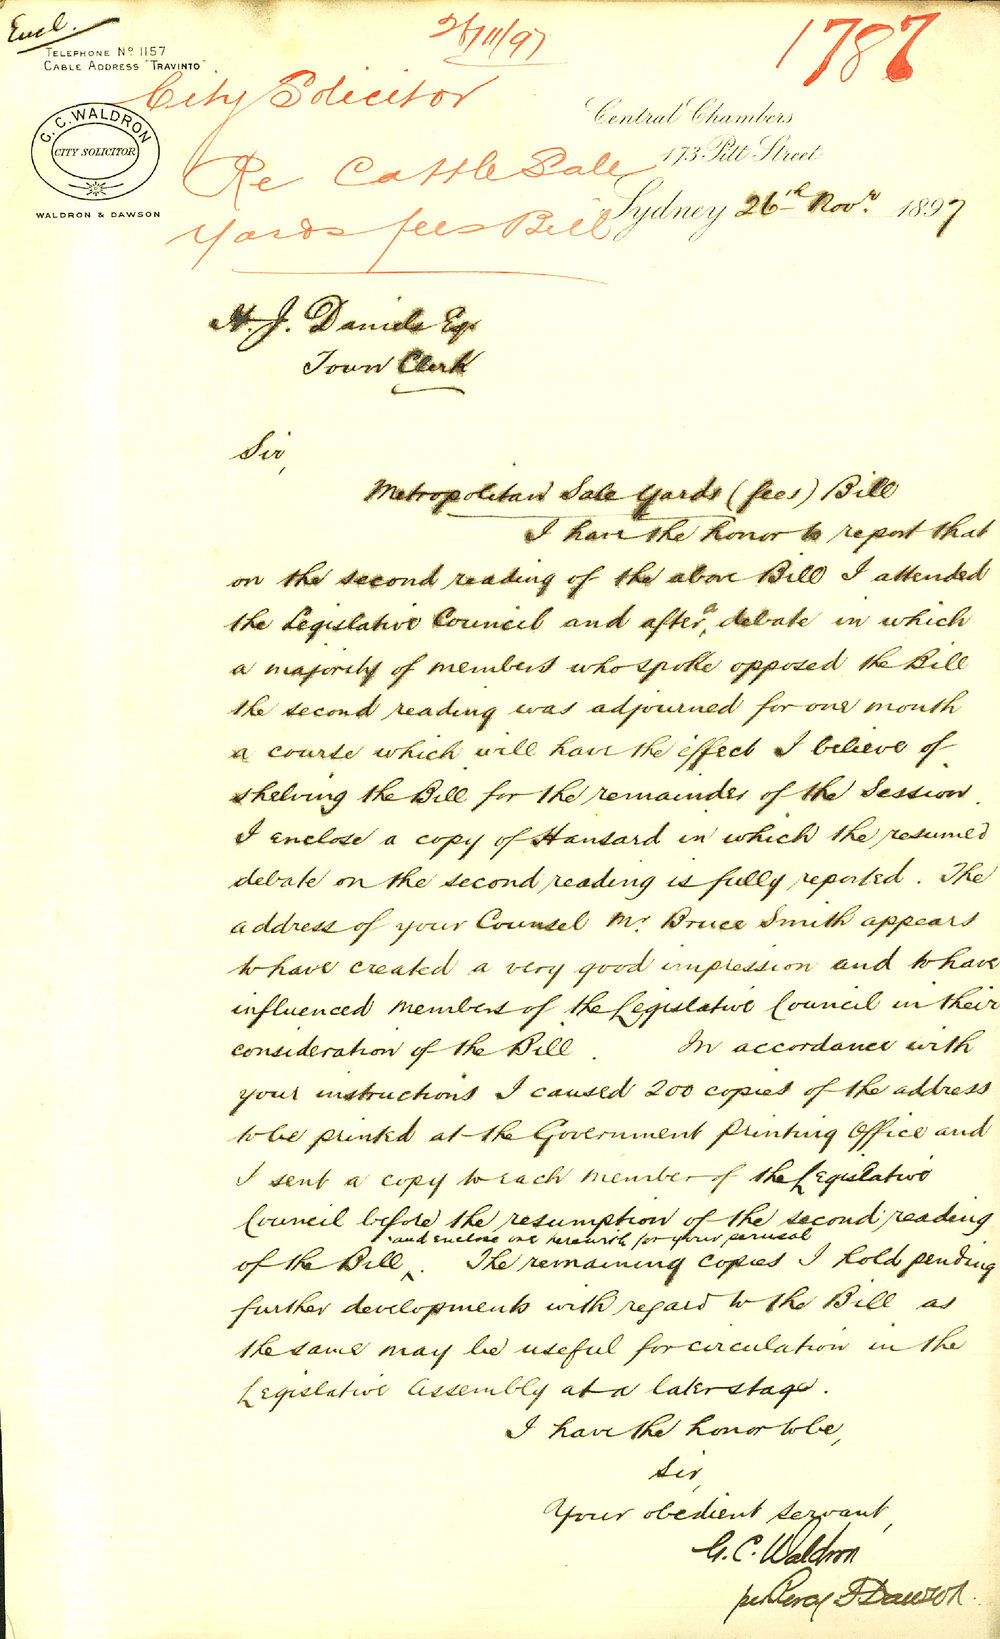 Encl.
TELEPHONE No 1157
CABLE ADDRESS "TRAVINTO"
26/11/97
1787
City Solicitor
G. C. WALDRON
CITY SOLICITOR
WALDRON & DAWSON
Central Chambers
173 Pitt Street
Re Cattle Sale
Yards fees Bill
Sydney 26th Novr. 1897
H. J. Daniels Esq
Town Clerk
Sir,
Metropolitan Sale Yards (fees) Bill
I have the honor to report that
on the second reading of the above Bill I attended
the Legislative Council and after a debate in which
a majority of members who spoke opposed the Bill
the second reading was adjourned for one month
a course which will have the effect I believe of
shelving the Bill for the remainder of the Session.
I enclose a copy of Hansard in which the resumed
debate on the second reading is fully reported. The
address of your Counsel Mr. Bruce Smith appears
to have created a very good impression and to have
influenced members of the Legislative Council in their
consideration of the Bill. In accordance with
your instructions I caused 200 copies of the address
to be printed at the Government Printing Office and
I sent a copy to each member of the Legislative
Council before the resumption of the second reading
and enclose one herewith for your perusal
of the Bill. The remaining copies I hold pending
further developments with regard to the Bill as
the same may be useful for circulation in the
Legislative Assembly at a later stage.
I have the honor to be,
Sir,
Your obedient servant,
G. C. Waldron
per Percy Dawson